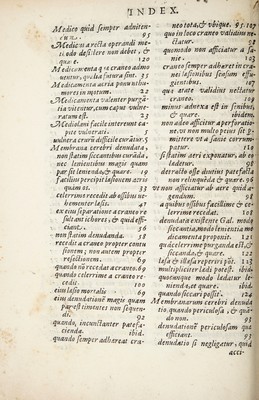 INDEX.
Medico quid semper adniten-
95
Medicum a recta operandi me-
todo desistere non debet, &
quare. 120
Medicamenta quæ craneo admo
uentur, qualia futura sint. 35
Medicamenta actu
mores in motum. 22
Medicamenta valenter purgā-
tia vitentur, cum caput vulne-
ratum est. 23
facile intereunt ca-
pite vulnerati. 5
vulnera crurū difficile curātur. 5
Membrana cerebri denudata,
non statim siccantibus curāda,
nec lenientibus magis quam
par sit lenienda, & quare
facilius percipit læsionem
quàm os. 33
celerrime recedit ab ossibus ve-
hementer læsis. 41
ex eius separatione a craneo re
sultant ichores, & quid effi-
ciant. 36
non statim denudanda. 38
recedit a craneo propter contu
sionem; non autem propter
resectionem. 69
quando nō recedat a craneo. 69
quando celerrime a craneo re-
cedit. 100
eius læsio mortalis 69
eius denudationē magis quam
par est timentes non sequen-
di. 92
quando, incunctanter patefa-
cienda. ibid.
quando semper adhæreat cra-
neo tota, & vbique. 95. 107
quo in loco craneo validius ne-
ctatur. 98
quomodo non afficiatur a sa-
nie. 103
craneo semper adhæret in cra-
nei læsionibus scissum effi-
gientibus. 107
qua ætate validius nectatur
craneo. 108
minus adhæret in senibus,
& quare. ibidem.
non adeo afficitur aperforatio-
ne, vt non multo peius sit p-
mittere vt a sanie corrum-
patur. 110
si statim aeri exponatur, ab eo
lædetur. 98
detracto osse diutius patefacta
non relinquēda & quare. 98
vt non afficiatur ab aere quid a-
gendum. 98
a quibus ossibus facillime & ce-
lerrime recedat. 108
denudata existente Gal. modo
siccantia, modo lenientia me
dicamenta proponit. 121
quā celerrime purganda est, &
siccanda, & quare. 121
læsa & illæsa reperiri pōt. 113
multipliciter lædi potest. ibid.
quocunque modo lædatur le-
niendo, et quare. ibid.
quando siccari possit. 124
Membranarum cerebri denuda
tio, quando periculosa, & quā-
do non. 91
denudationē periculosam quæ
efficiant. 93
denudatio si negligatur, quid
acci-